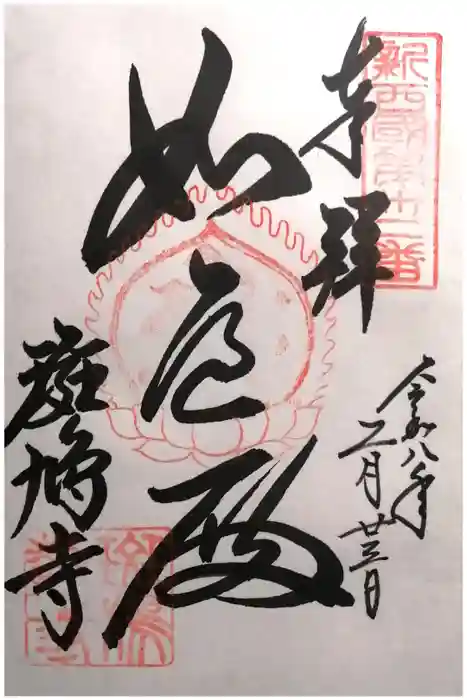 新西國第卅二番
奉拝
令和八年
二月廿三日
如意殿
斑鳩寺